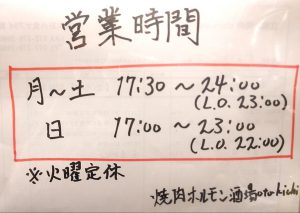 営業時間
月～土 17:30 ～ 24:00
(L.O. 23:00)
日 17:00 ～ 23:00
(L.O. 22:00)
※火曜定休
焼肉ホルモン酒場oto-kichi